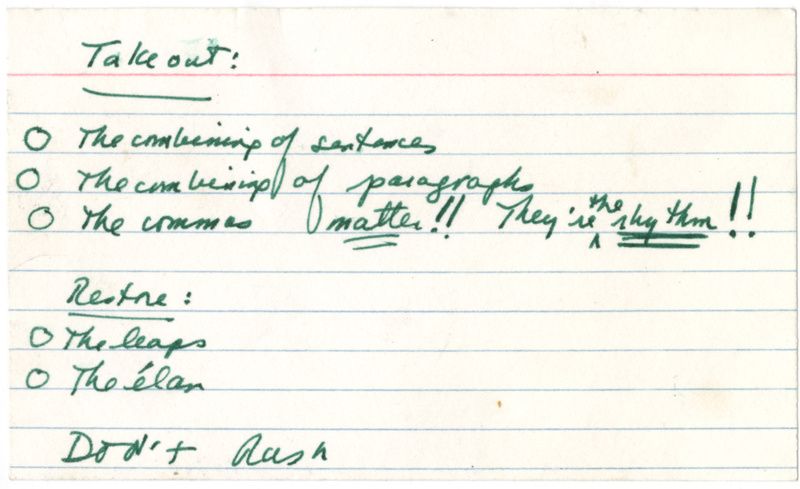 Take out:
The combining of sentences
The combining of paragraphs
The commas matter!! They're the rhythm!!
Restore:
The leaps
The élan
DON'T Rush